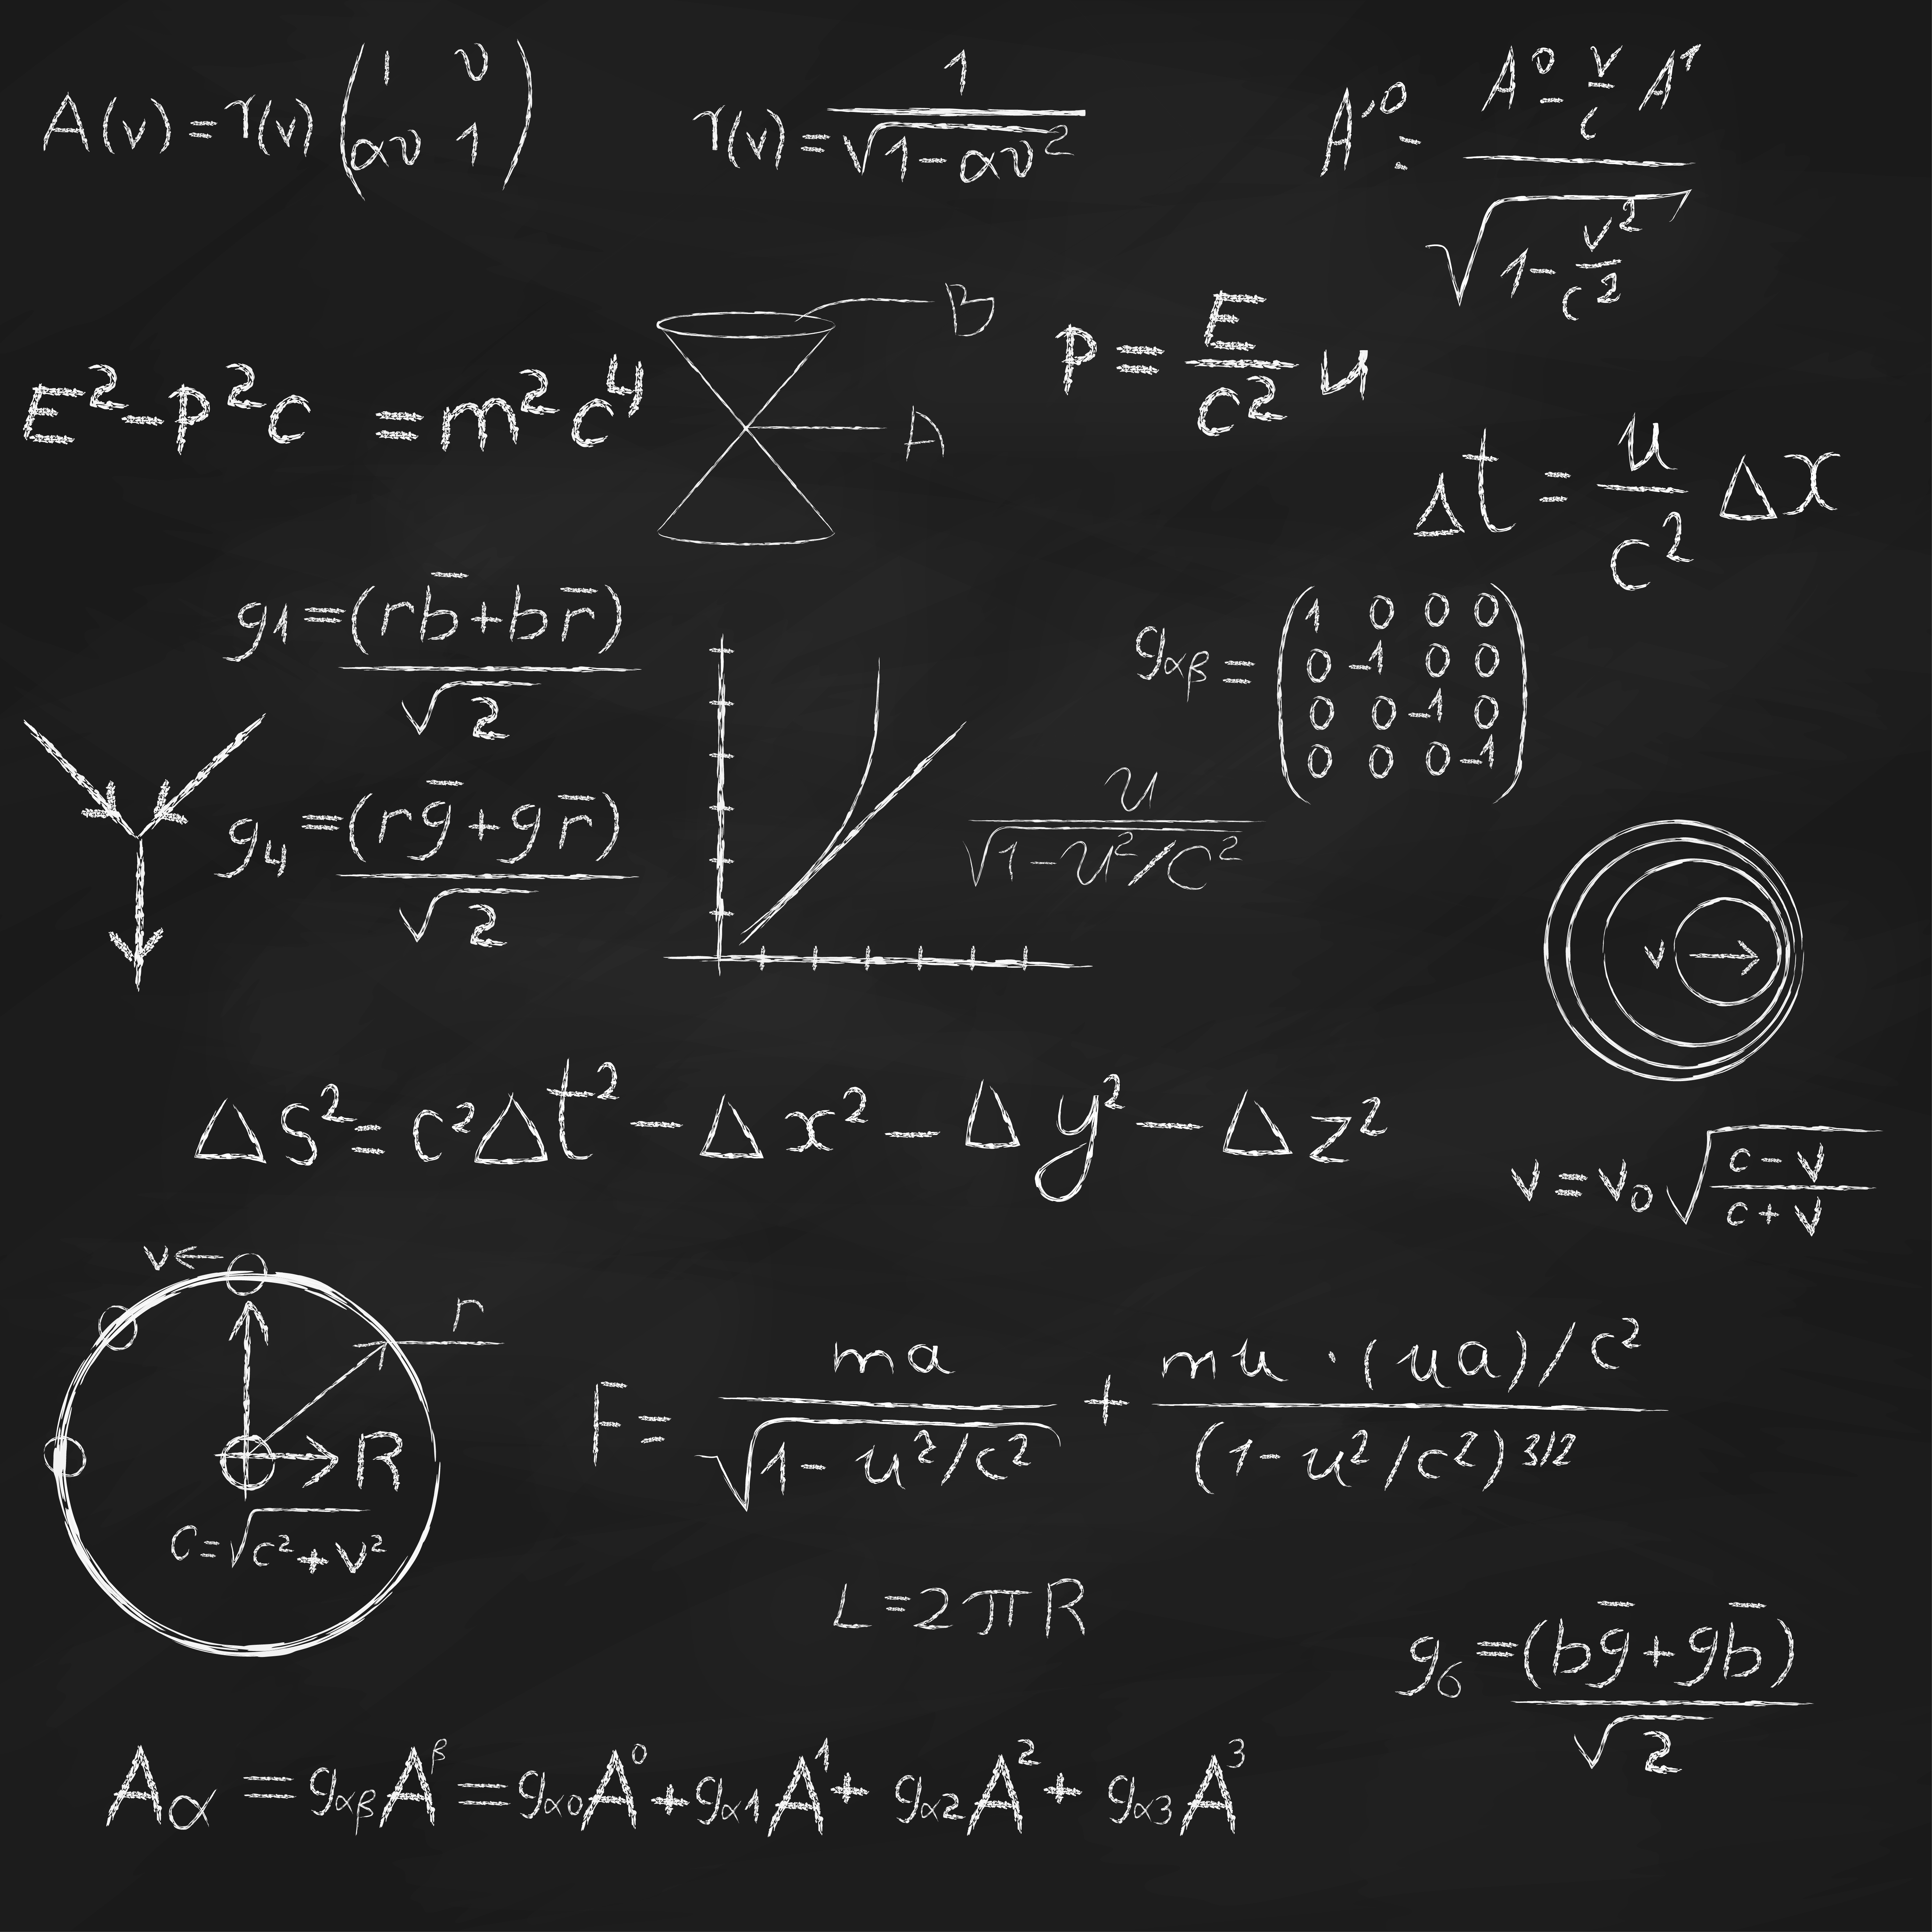 A(v) = γ(v) ( 1 v
αv 1 )
γ(v) = 1 / √(1 - αv²)
A'⁰ = (A⁰ - v/c A¹) / √(1 - v²/c²)
E² - P²c = m²c⁴
B
A
P = E/c² u
Δt = u/c² Δx
g1 = (rb̄ + br̄) / √2
gαβ = ( 1 0 0 0
0 -1 0 0
0 0 -1 0
0 0 0 -1 )
g4 = (rḡ + gr̄) / √2
u / √(1 - u²/c²)
v →
Δs² = c²Δt² - Δx² - Δy² - Δz²
v = v₀ √((c - v)/(c + v))
v ←
r
R
C = √(c² + v²)
F = ma / √(1 - u²/c²) + mu · (ua)/c² / (1 - u²/c²)^3/2
L = 2πR
g6 = (bḡ + gb̄) / √2
Aα = gαβ A^β = gα0 A⁰ + gα1 A¹ + gα2 A² + gα3 A³